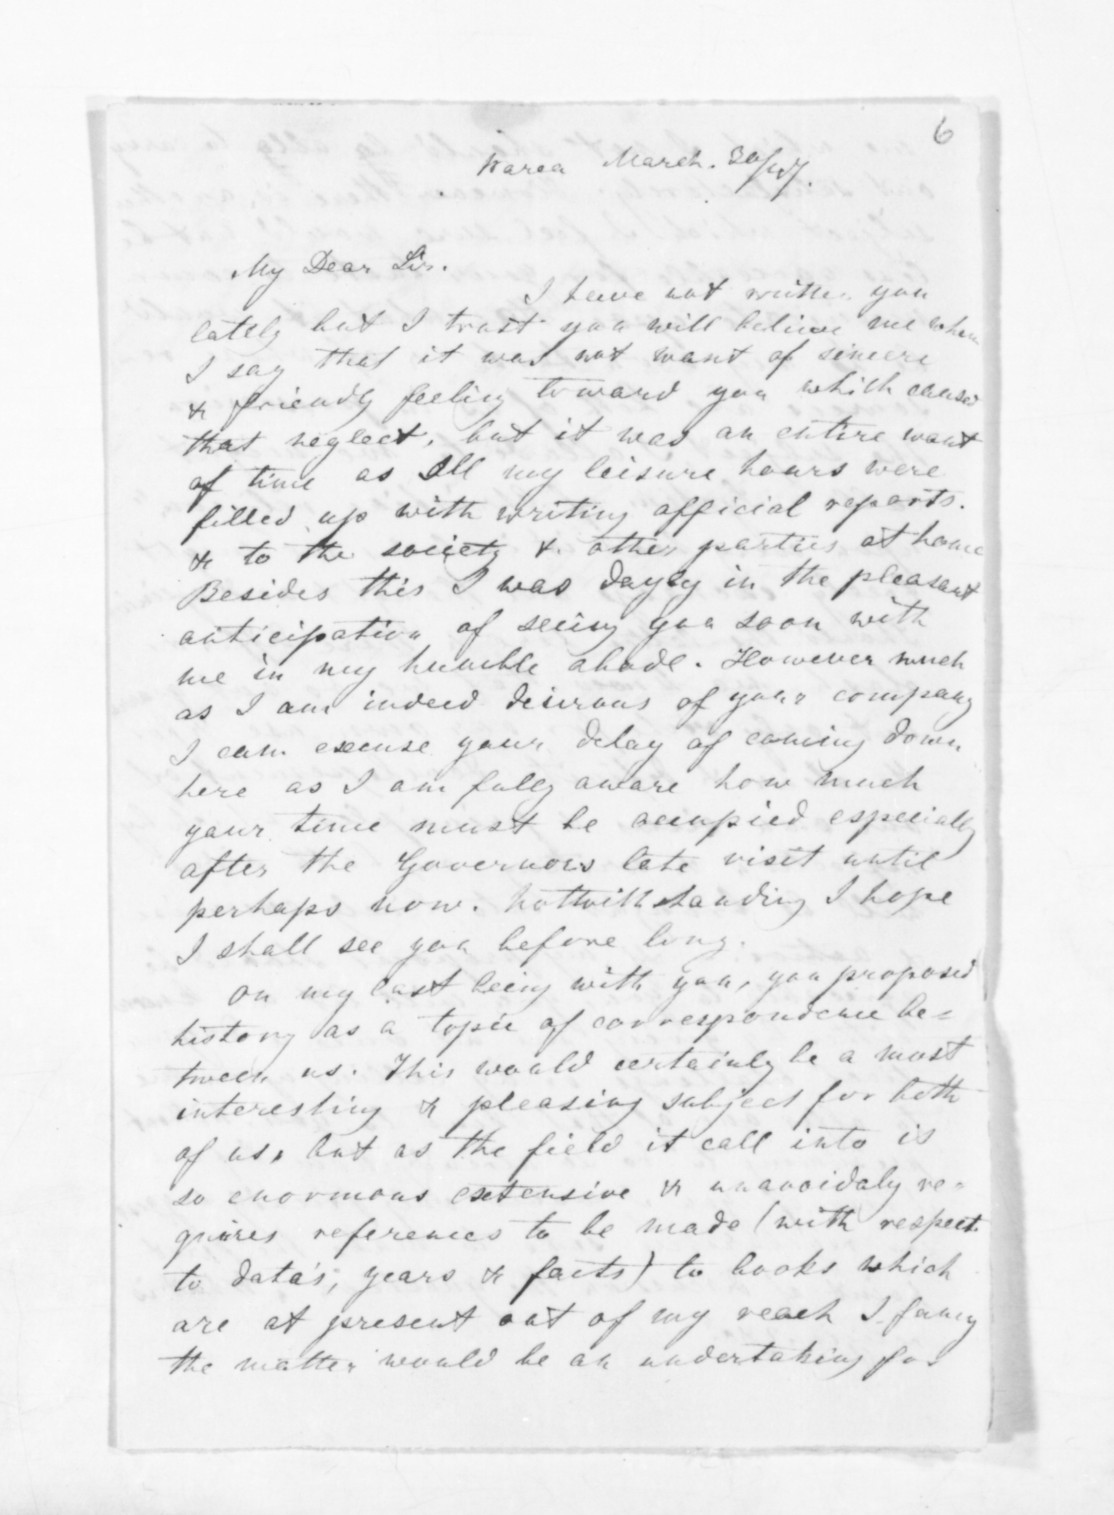 6
Warea March. 30/47.
My Dear Sir.
I have not written you
lately but I trust you will believe me when
I say that it was not want of sincere
& friendly feeling toward you which caused
that neglect, but it was an entire want
of time as all my leisure hours were
filled up with writing official reports.
& to the society & other parties at home
Besides this I was dayly in the pleasant
anticipation of seeing you soon with
me in my humble abode. However much
as I am indeed desirous of your company
I can excuse your delay of coming down
here as I am fully aware how much
your time must be occupied especially
after the Governors late visit until
perhaps now. Nottwithstanding I hope
I shall see you before long.
On my last being with you, you proposed
history as a topic of correspondence be=
tween us. This would certainly be a most
interesting & pleasing subject for both
of us, but as the field it call into is
so enormous extensive & unavoidaly re=
quires references to be made (with respect
to data's, years & facts) to books which
are at present out of my reach I fancy
the matter would be an undertaking for